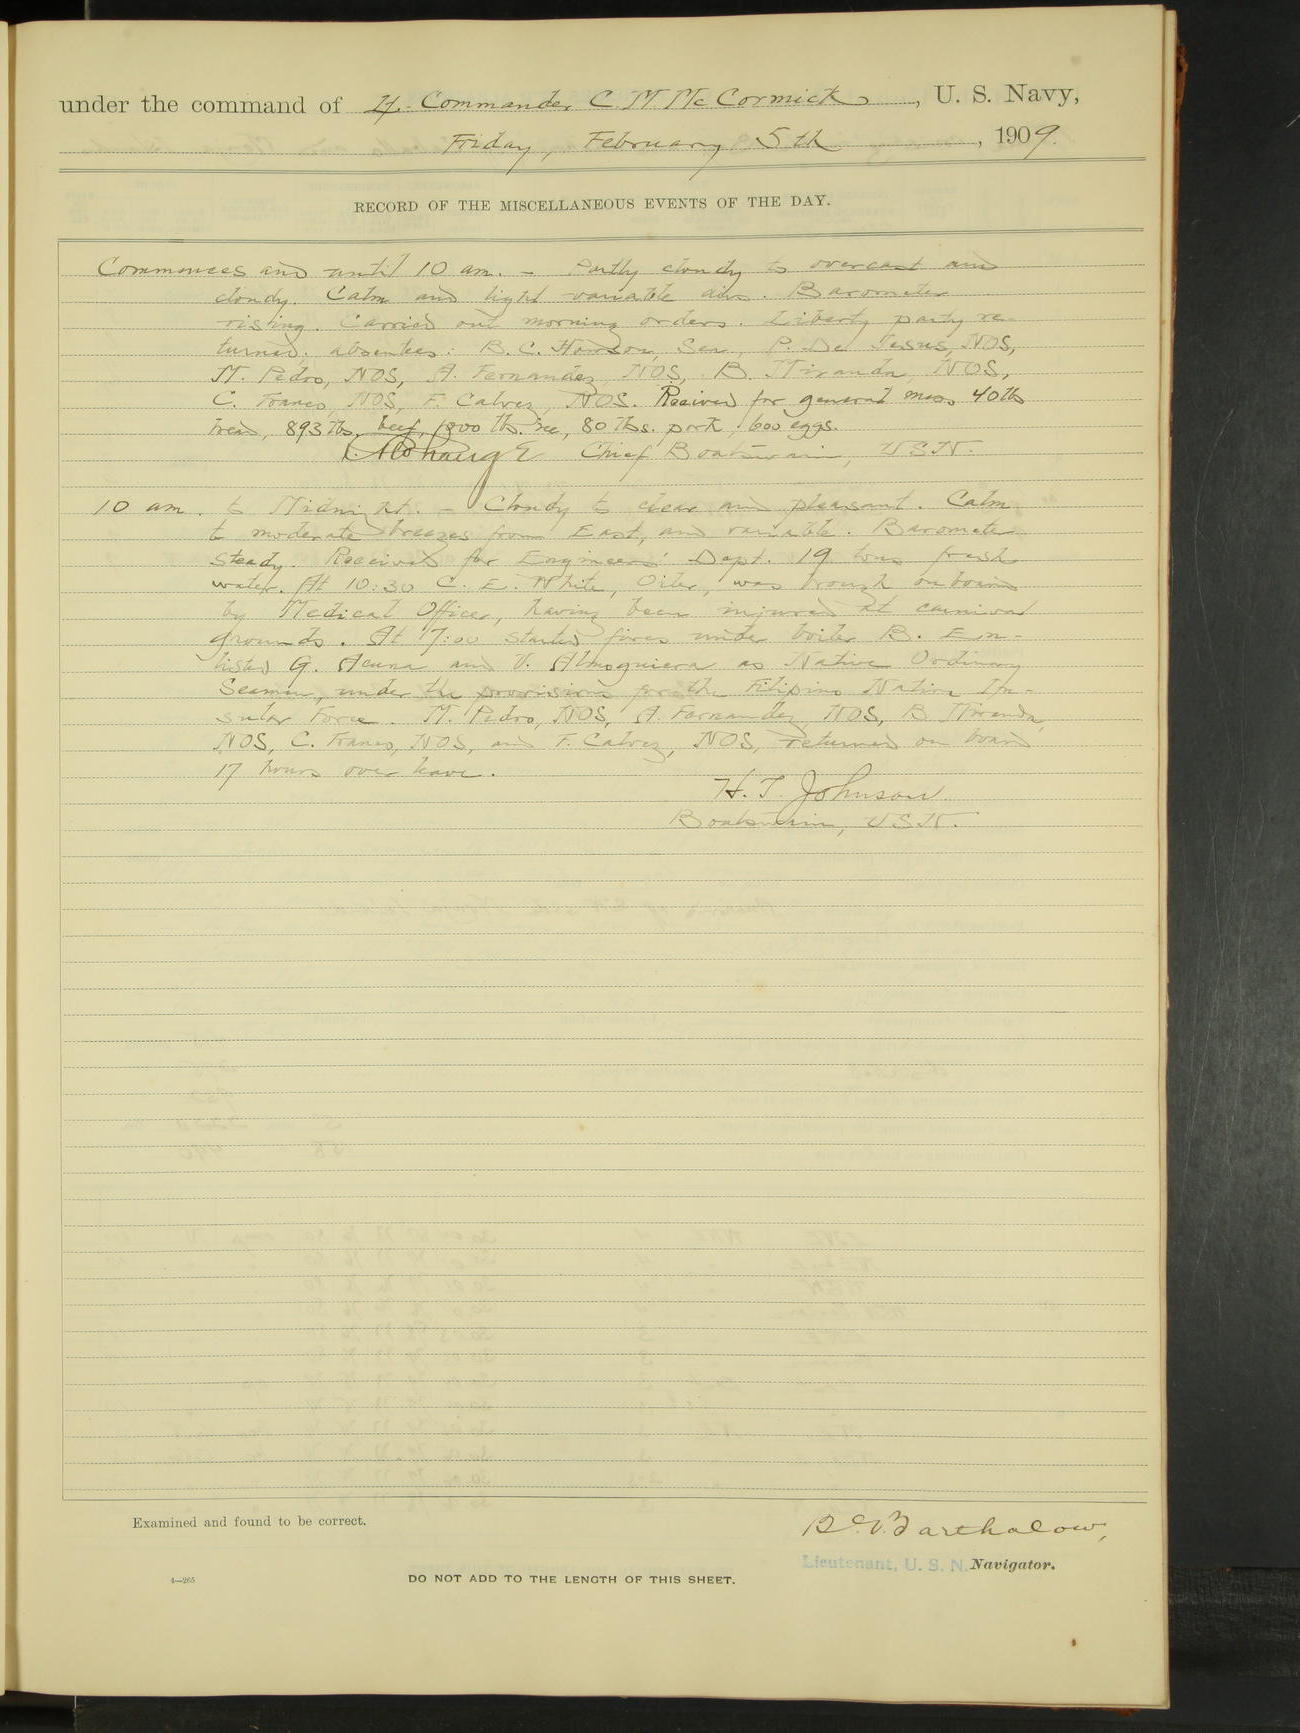 under the command of Lt. Commander C. M. McCormick, U. S. Navy,
Friday, February 5th, 1909.
RECORD OF THE MISCELLANEOUS EVENTS OF THE DAY.
Commences and until 10 am. - Partly cloudy to overcast and
cloudy. Calm and light variable airs. Barometer
rising. Carried out morning orders. Liberty party re-
turned; absentees: B. C. Sea., P. De Jesus, NOS,
M. Pedro, NOS, A. Fernandez, NOS, B. Miranda, NOS,
C. Franco, NOS, F. Calvez, NOS. Received for general mess 40 lbs
bread, 893 lbs. beef, 1800 lbs. ice, 80 lbs. pork, 600 eggs.
Chief Boatswain, USN.
10 am. to Midnight. - Cloudy to clear and pleasant. Calm
to moderate breezes from East, and variable. Barometer
steady. Received for Engineers' Dept. 19 tons fresh
water. At 10:30 C. E. White, Oiler, was brough on board
by Medical Officer, having been injured at carnival
grounds. At 7:00 started fires under boiler B. En-
listed G. Acuna and V. Almoguiera as Native Ordinary
Seamen, under the provisions for the Filipino Native In-
sular Force. M. Pedro, NOS, A. Fernandez, NOS, B. Miranda,
NOS, C. Franco, NOS, and F. Calvez, NOS, returned on board
17 hours over leave.
H. T. Johnson
Boatswain, USN.
Examined and found to be correct.
Barthalow,
Lieutenant, U. S. N. Navigator.
4—265
DO NOT ADD TO THE LENGTH OF THIS SHEET.